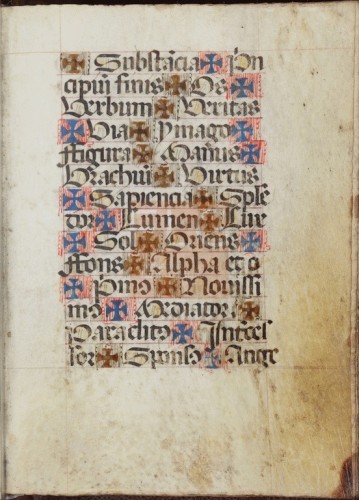 ✠ Substācia ✠ Prī
cipiū finis ✠ Os ✠
Verbum ✠ Veritas
✠ Via ✠ Ymago ✠
ffigura ✠ Manus ✠
Brachiū ✠ Virtus
✠ Sapiencia ✠ Splē
dor ✠ Lumen ✠ Lux
✠ Sol ✠ Oriens ✠
ffons ✠ Alpha et o
✠ Primꝯ ✠ Nouissi
mꝯ ✠ Mediator ✠
Paraclitꝯ ✠ Interces
sor ✠ Sponsꝯ ✠ Ange